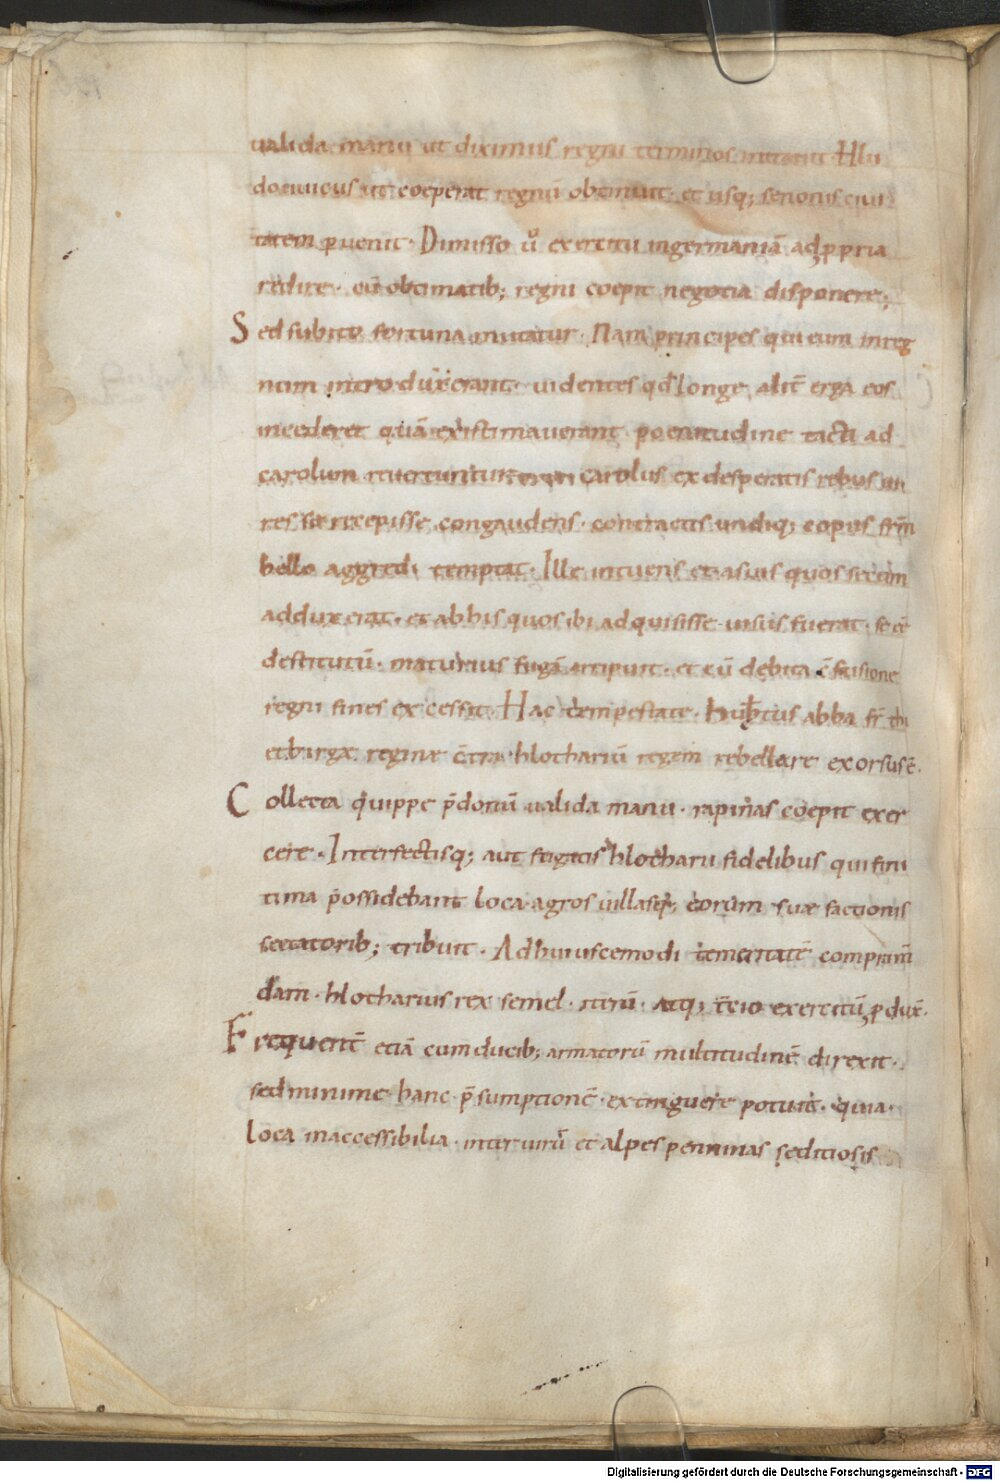 valida manu ut diximus regni terminos intrauit Hlu
douuicus ut coeperat regnū obtinuit · et usq; senonis ciui
tatem ꝑuenit · Dimisso ů exercitu in germaniā ad ꝓpria
redire · cū obtimatib; regni coepit negotia disponere ;
Sed subito fortuna mutatur · Nam principes qui eum in reg
num introduxerant · uidentes qđ longe alit̄ erga eos
incederet quā existimauerant poenitudine tacti ad
carolum reuertuntur carolus ex desperatis rebus ui
res se recepisse congaudens · contractis undiq; copiis fr̄m
bello aggredi temptat · Ille intuens et a suis quos secum
adduxerat · et ab his quos ibi adquisisse uisus fuerat · se eē
destitutū · maturius fugā arripuit · et cū debita c̄fusione
regni fines excessit · Hac tempestate · hubtus abba fr̄ thi
etbirgæ reginæ c̄tra hlothariū regem rebellare exorsus ē ·
Collecta quippe p̄donū ualida manu · rapinas coepit exer
cere · Interfectisq; aut fugatis hlotharii fidelibus qui fini
tima possidebant loca · agros uillasq; eorum suæ factionis
sectatorib; tribuit · Ad huiuscemodi temeritatē comprim̄
dam · hlotharius rex semel · iterū · atq; t̄cio exercitū ꝓdux̄ ·
Frequent̄ etiā cum ducib; armatorū multitudinē direxit ·
sed minime hanc p̄sumptionē extinguere potuit · quia ·
loca inaccessibilia · inter iurū et alpes penninas seditiosis
Digitalisierung gefördert durch die Deutsche Forschungsgemeinschaft - DFG